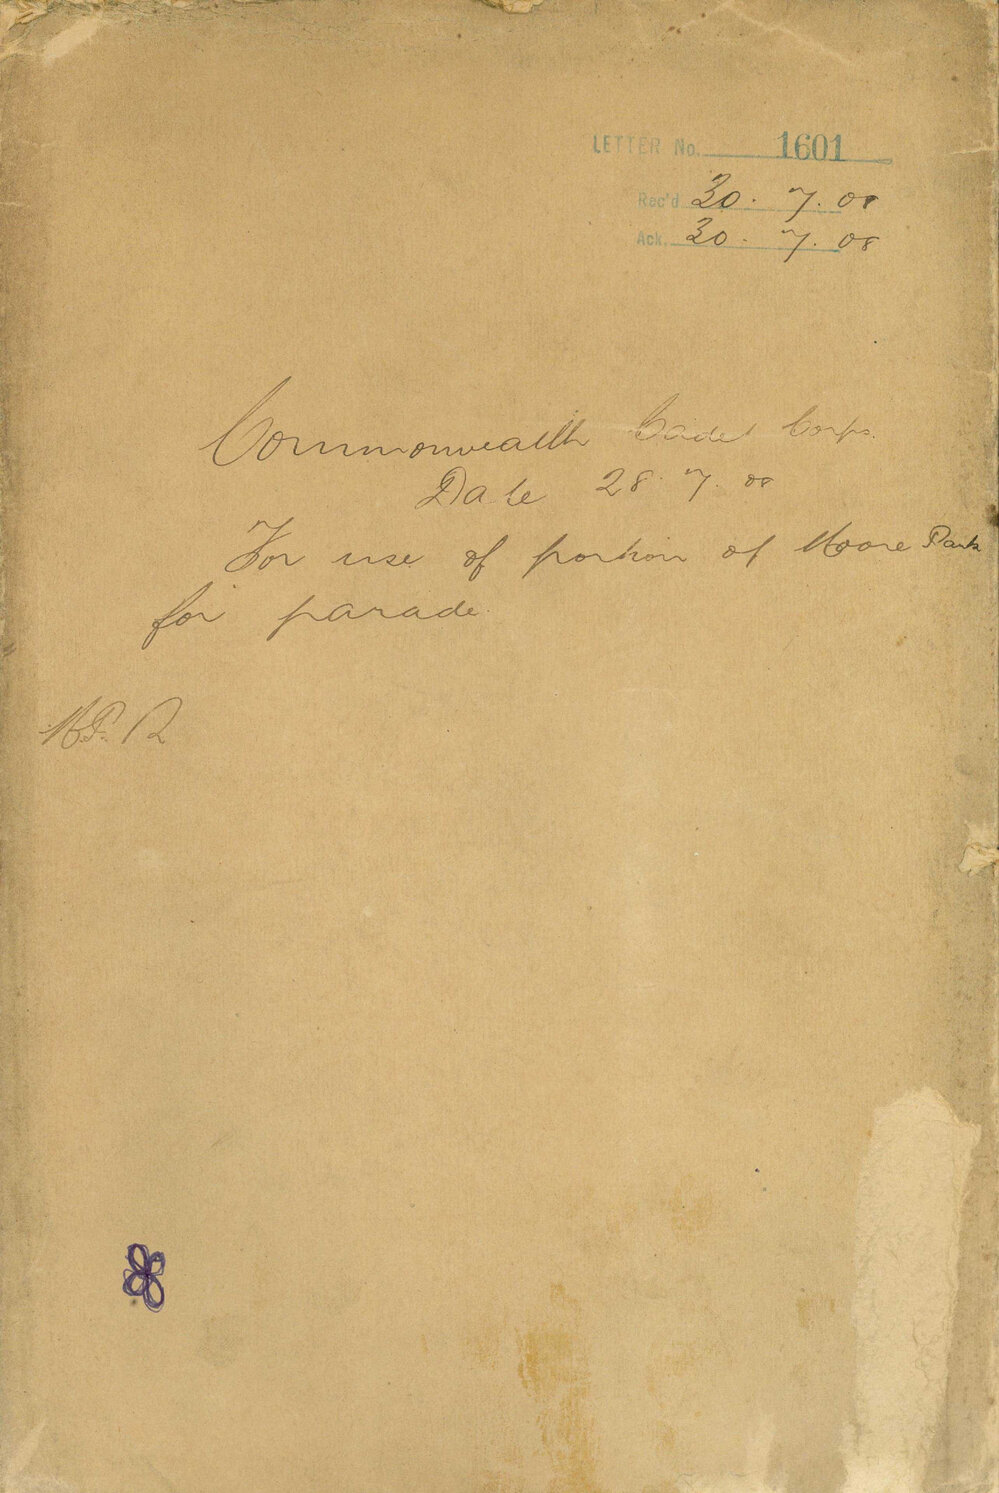 LETTER No. 1601
Rec'd 30. 7. 08
Ack. 30. 7. 08
Commonwealth Cadet Corps.
Date 28. 7. 08
For use of portion of Moore Park
for parade.